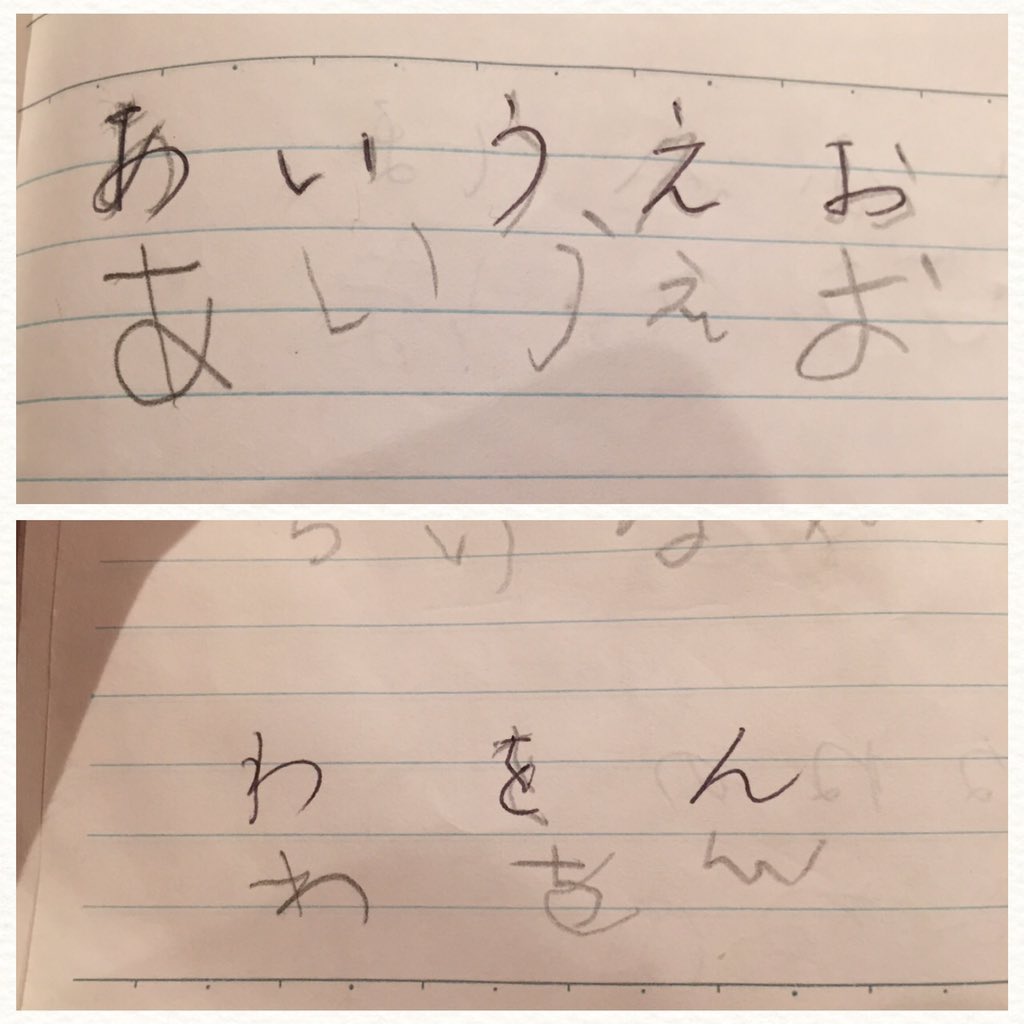 あ い う え お
あ い う え お
わ を ん
わ を ん